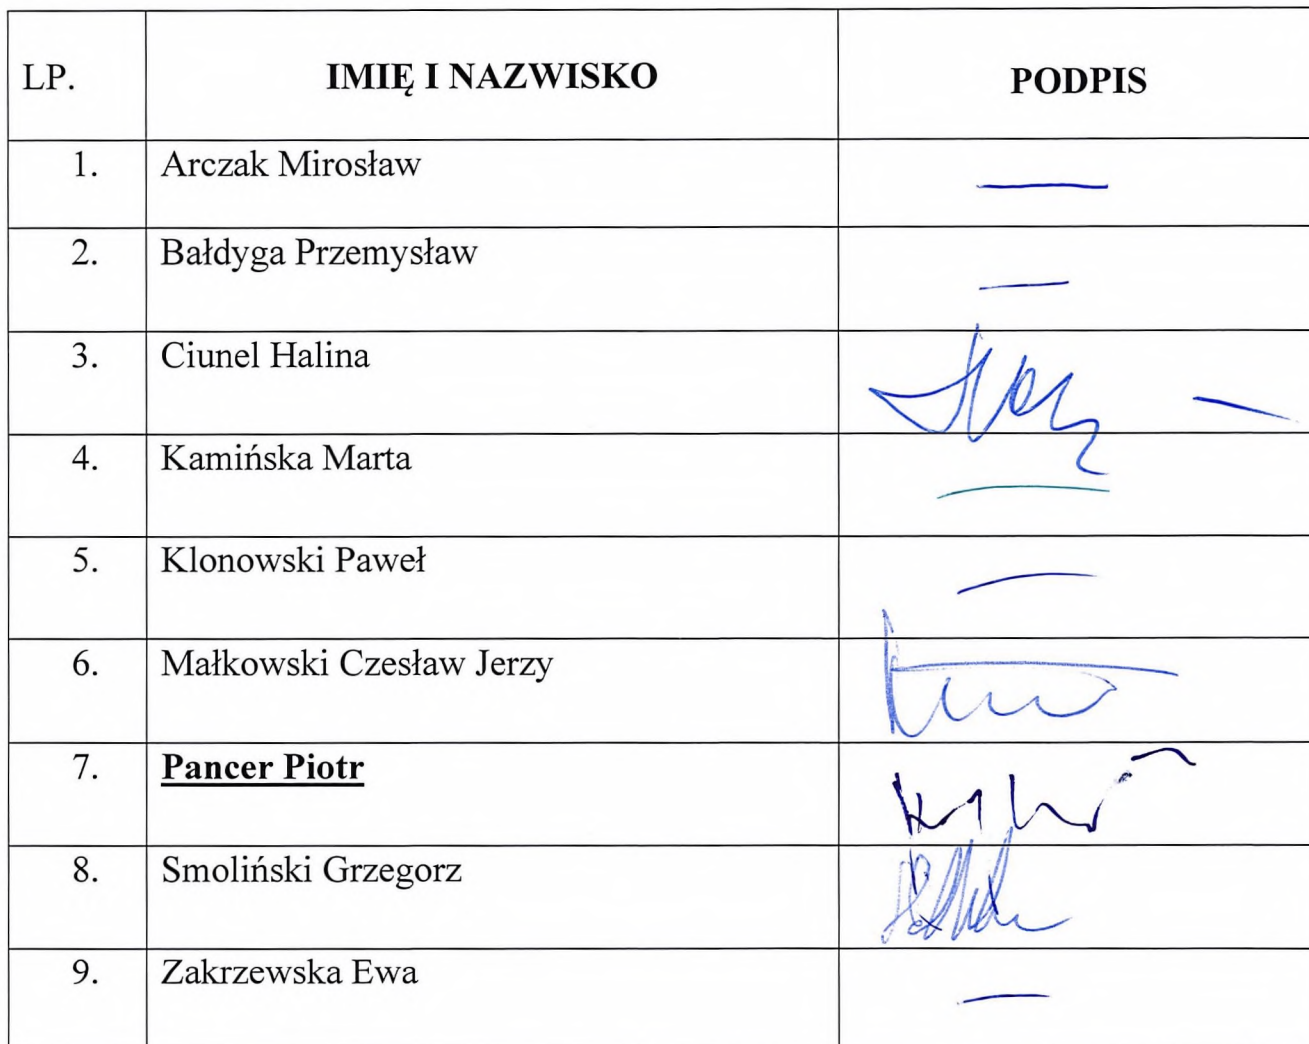 LP. IMIĘ I NAZWISKO PODPIS
1. Arczak Mirosław —
2. Bałdyga Przemysław —
3. Ciunel Halina
4. Kamińska Marta —
5. Klonowski Paweł —
6. Małkowski Czesław Jerzy
7. Pancer Piotr
8. Smoliński Grzegorz
9. Zakrzewska Ewa —